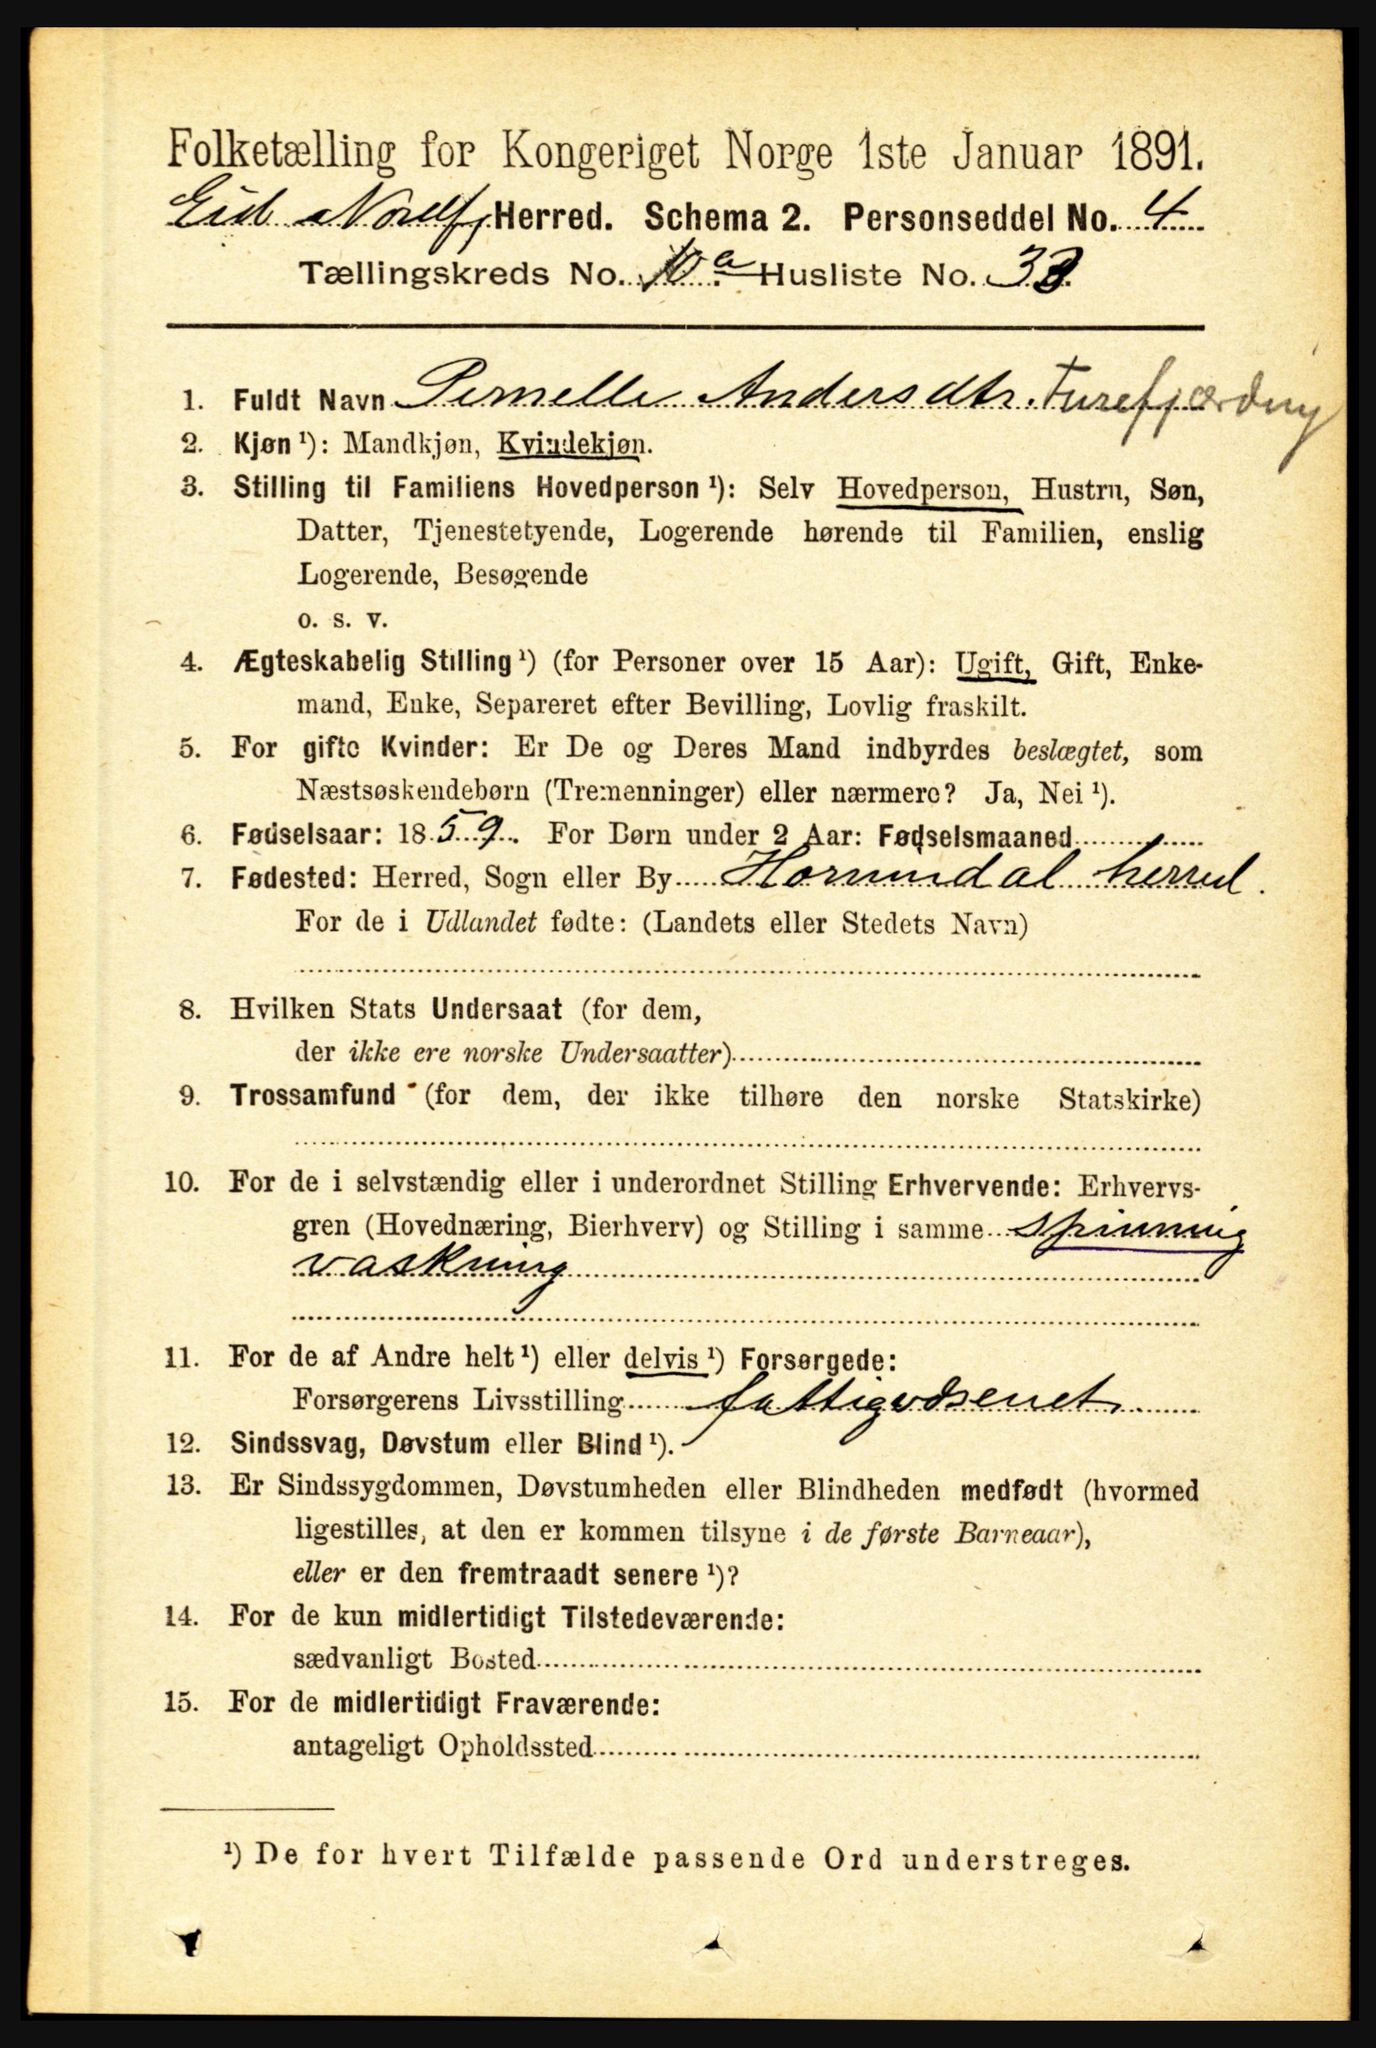 Folketælling for Kongeriget Norge 1ste Januar 1891.
Eid Nordfj. Herred. Schema 2. Personseddel No. 4
Tællingskreds No. 10 a Husliste No. 33.
1. Fuldt Navn Pernelle Andersdtr. Furefjærding
2. Kjøn ¹): Mandkjøn, Kvindekjøn.
3. Stilling til Familiens Hovedperson ¹): Selv Hovedperson, Hustru, Søn,
Datter, Tjenestetyende, Logerende hørende til Familien, enslig
Logerende, Besøgende
o. s. v.
4. Ægteskabelig Stilling ¹) (for Personer over 15 Aar): Ugift, Gift, Enke-
mand, Enke, Separeret efter Bevilling, Lovlig fraskilt.
5. For gifte Kvinder: Er De og Deres Mand indbyrdes beslægtet, som
Næstsøskendebørn (Tremenninger) eller nærmere? Ja, Nei ¹).
6. Fødselsaar: 1859. For Børn under 2 Aar: Fødselsmaaned
7. Fødested: Herred, Sogn eller By Hornindal herred.
For de i Udlandet fødte: (Landets eller Stedets Navn)
8. Hvilken Stats Undersaat (for dem,
der ikke ere norske Undersaatter)
9. Trossamfund (for dem, der ikke tilhøre den norske Statskirke)
10. For de i selvstændig eller i underordnet Stilling Erhvervende: Erhvervs-
gren (Hovednæring, Bierhverv) og Stilling i samme spinning
vaskning
11. For de af Andre helt ¹) eller delvis ¹) Forsørgede:
Forsørgerens Livsstilling fattigvæsenet
12. Sindssvag, Døvstum eller Blind ¹).
13. Er Sindssygdommen, Døvstumheden eller Blindheden medfødt (hvormed
ligestilles, at den er kommen tilsyne i de første Barneaar),
eller er den fremtraadt senere ¹)?
14. For de kun midlertidigt Tilstedeværende:
sædvanligt Bosted
15. For de midlertidigt Fraværende:
antageligt Opholdssted
¹) De for hvert Tilfælde passende Ord understreges.